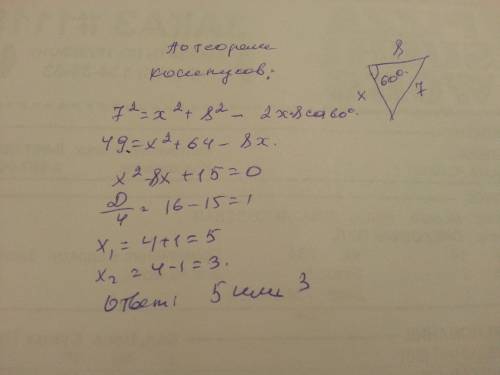 По теореме
косинусов:
7² = x² + 8² - 2x·8cos60°.
49 = x² + 64 - 8x.
x² - 8x + 15 = 0
D/4 = 16 - 15 = 1
x₁ = 4 + 1 = 5
x₂ = 4 - 1 = 3.
Ответ: 5 или 3
8
60°
x
7